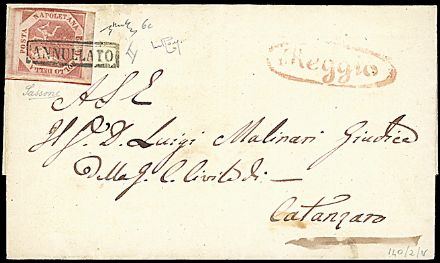 POSTA NAPOLETANA
ANNULLATO
Reggio
Sassone
A S. E.
Il Sr. D. Luigi Molinari Giudice
della G. C. Civile di
Catanzaro
140/2/V